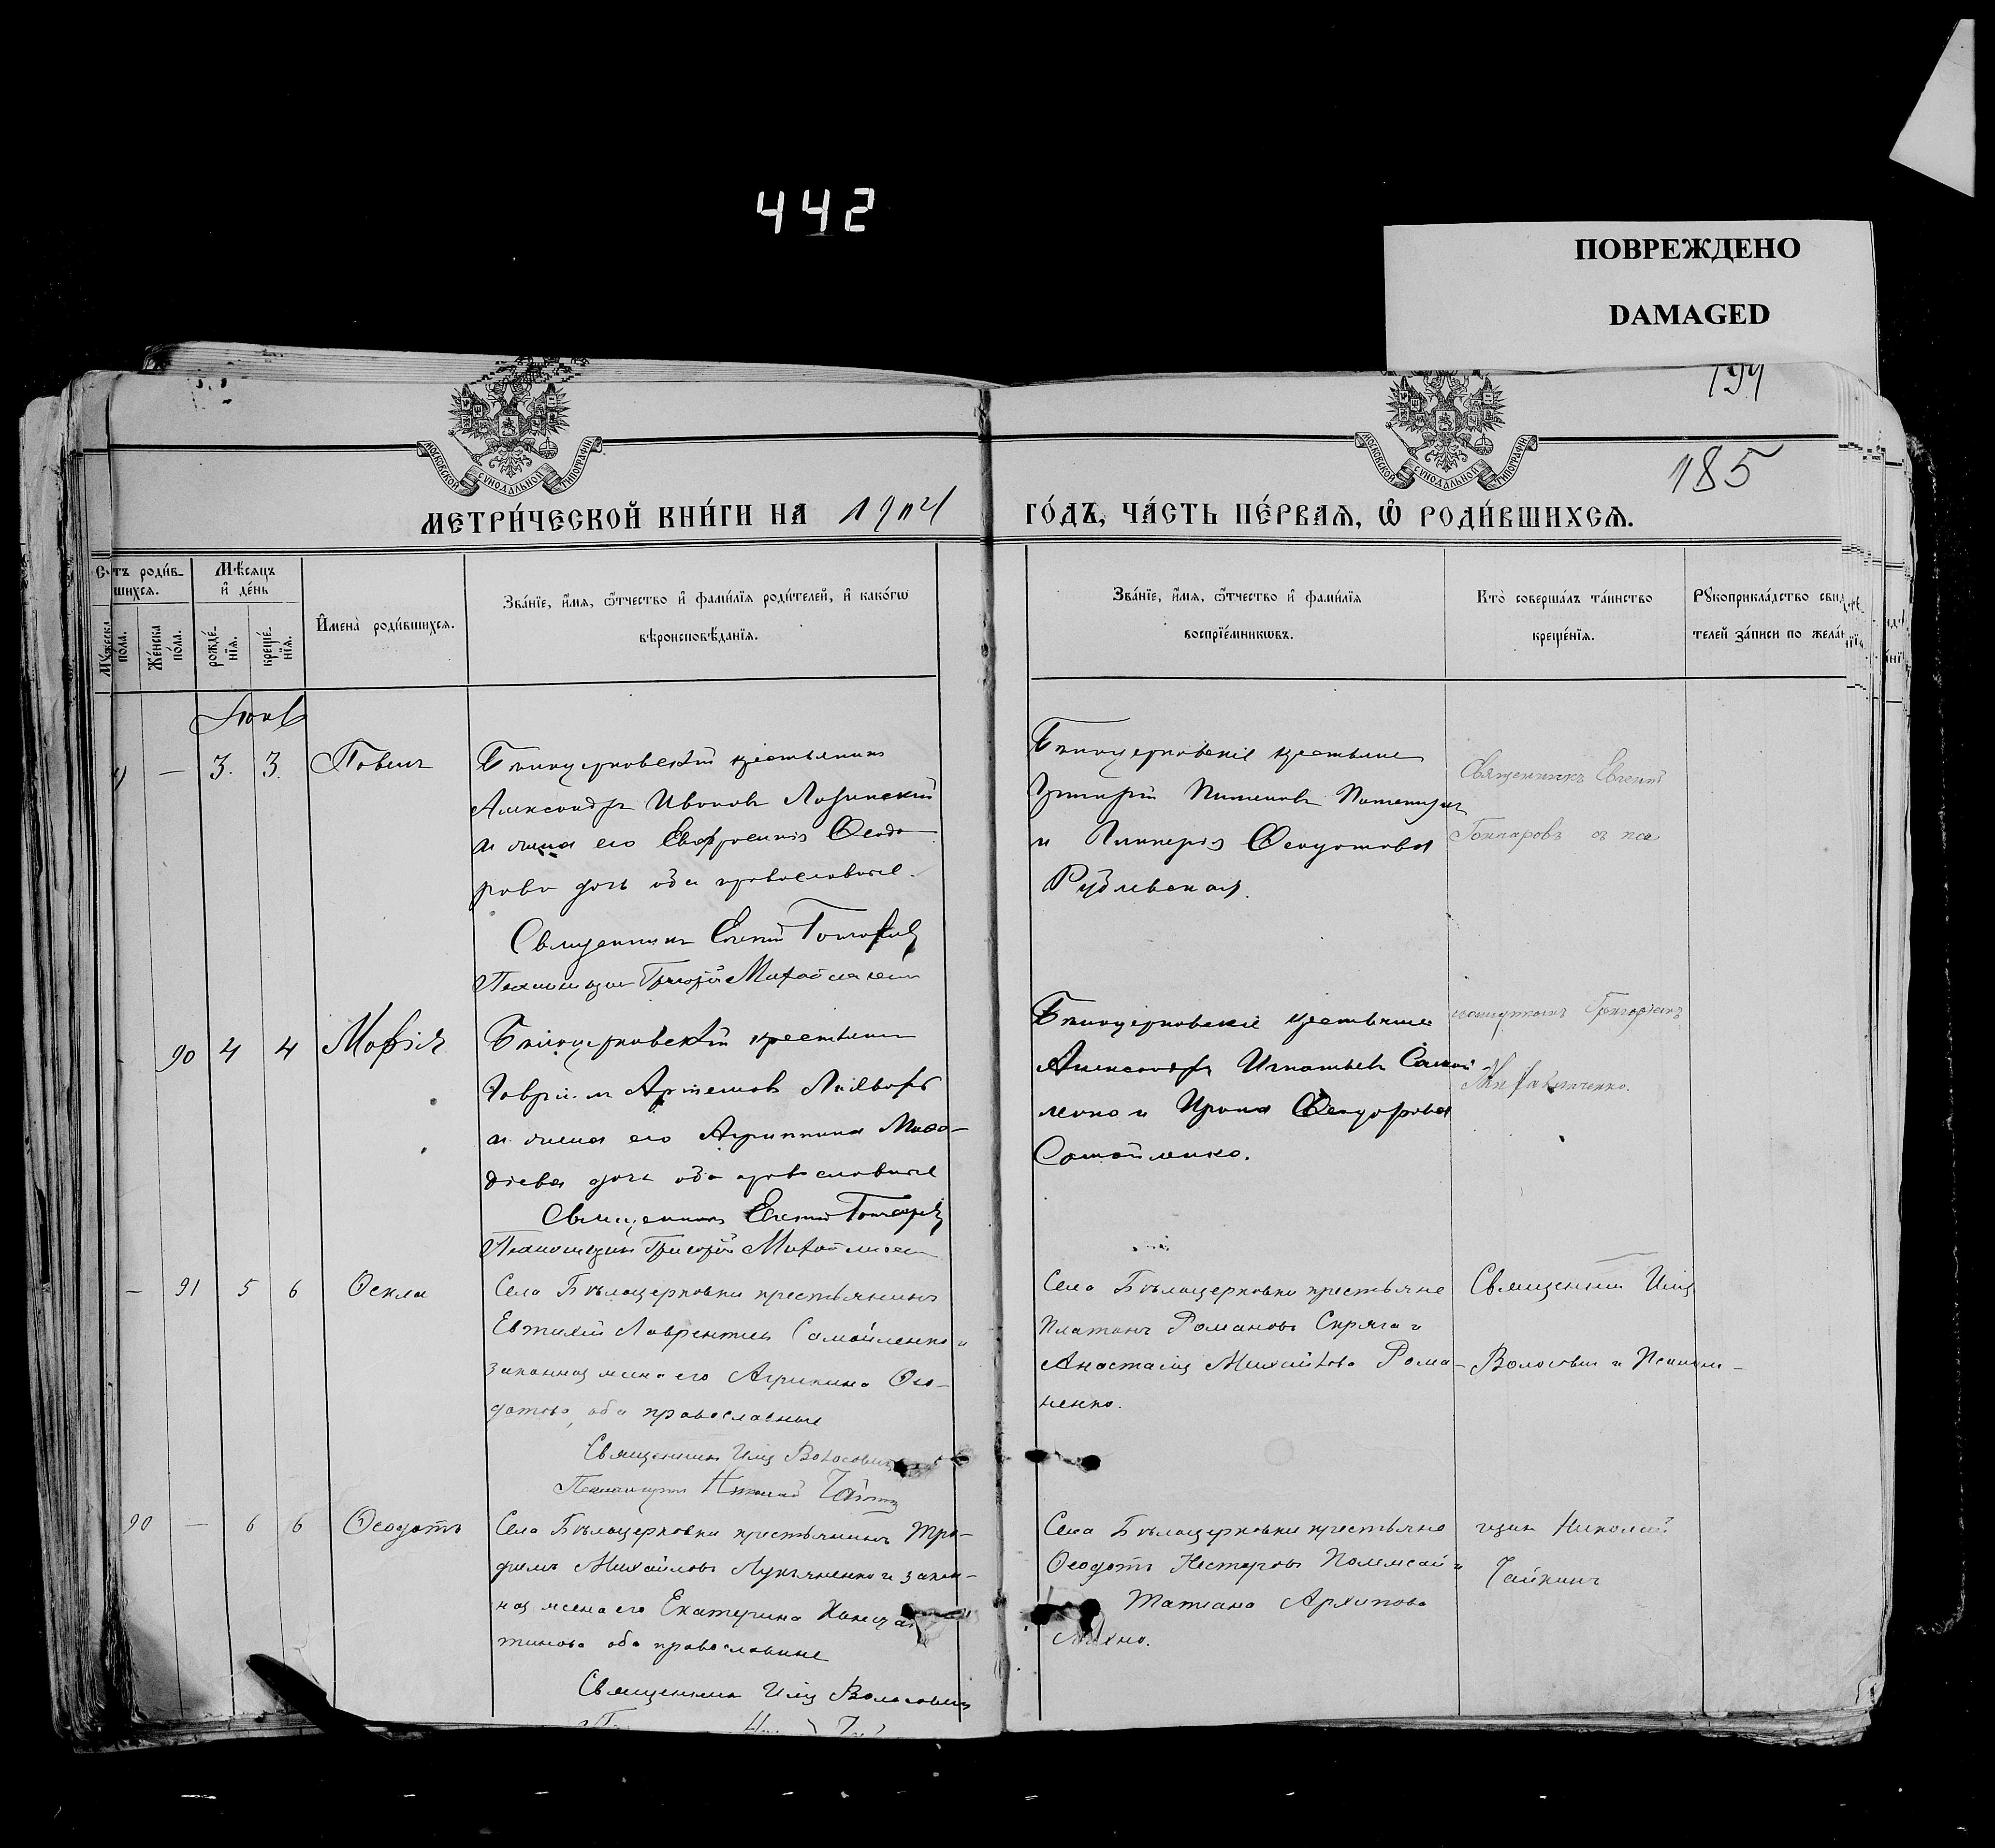 442
ПОВРЕЖДЕНО
DAMAGED
194
185
МОСКОВСКОЙ СѴНОДАЛЬНОЙ ТИПОГРАФІИ
МОСКОВСКОЙ СѴНОДАЛЬНОЙ ТИПОГРАФІИ
МЕТРИ́ЧЕСКОЙ КНИ́ГИ НА 1904
ГО́ДЪ, ЧА́СТЬ ПЕ́РВАѦ, Ѽ РОДИ́ВШИХСѦ.
тъ роди́в-
шихсѧ.
Мꙋ́жеска по́ла.
Же́нска по́ла.
Мѣ́сѧцъ
и҆ де́нь
рожде́-
нїѧ.
креще́-
нїѧ.
И҆мена̀ роди́вшихсѧ.
Зва́нїе, и҆́мѧ, ѻ҆́тчество и҆ фами́лїѧ роди́телей, и҆ како́гѡ
вѣроисповѣ́данїѧ.
Зва́нїе, и҆́мѧ, ѻ҆́тчество и҆ фами́лїѧ
воспрїе́мникѡвъ.
Кто̀ соверша́лъ та́инство
креще́нїѧ.
Рꙋкоприкла́дство свид
телей за́писи по жела́н
Іюнь
— 3. 3. Павелъ
Бѣлоцерковскій крестьянинъ
Александръ Ивановъ Лозинскій
и жена его Евфросинія Ѳеодо-
рова дочь оба православные.
Священникъ Евгеній Гончаровъ
Псаломщикъ Григорій Михайличенко
Бѣлоцерковскіе крестьяне
Григорій Пименовъ
и Гликерія Ѳеодотова
Рублевская.
Священникъ Евгеній
Гончаровъ съ пса
- 90 4 4 Марія
Бѣлоцерковскій крестьянинъ
Гавріилъ Артемовъ
и жена его Агриппина Меѳо-
діева дочь оба православные
Священникъ Евгеній Гончаровъ
Псаломщикъ Григорій Михайличенко
Бѣлоцерковскіе крестьяне
Александръ Игнатьевъ Самой
ленко и Ирина Ѳеодорова
Самойленко.
ломщикомъ Григоріемъ
Михайличенко.
— 91 5 6 Ѳекла
Села Бѣлоцерковки крестьянинъ
Евтихій Лаврентіевъ Самойленко и
законная жена его Агрипина Ѳео-
дотова, оба православные
Священникъ Илія Волосовичъ
Псаломщикъ Николай Чайкинъ
Села Бѣлоцерковки крестьяне
Платонъ Романовъ Скряга и
Анастасія Михайлова Рома-
ненко.
Священникъ Илія
Волосовичъ и Псалом-
90 — 6 6 Ѳеодотъ
Села Бѣлоцерковки крестьянинъ Тро-
фимъ Михайловъ Лукьяненко и закон-
ная жена его Екатерина Конста
тинова оба православные
Священникъ Илія Волосовичъ
Села Бѣлоцерковки крестьяне
Ѳеодотъ Несторовъ и
Татіана Архипова
Михно.
щикъ Николай
Чайкинъ